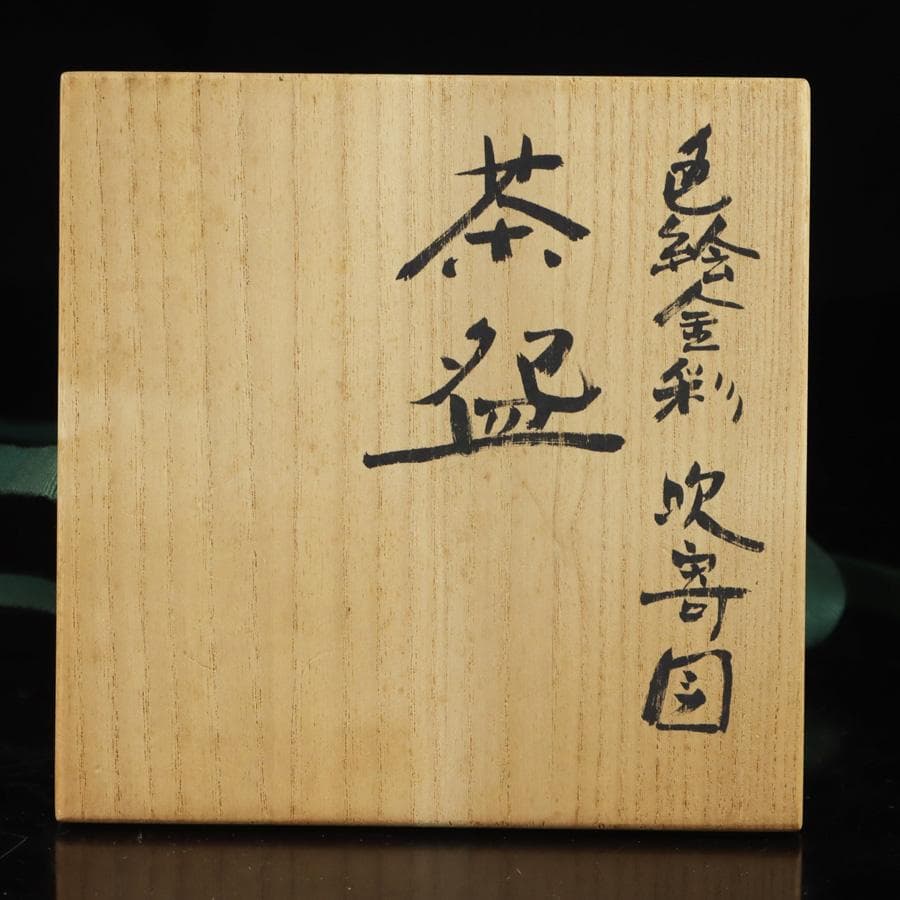 色絵金彩 吹寄図
茶盌